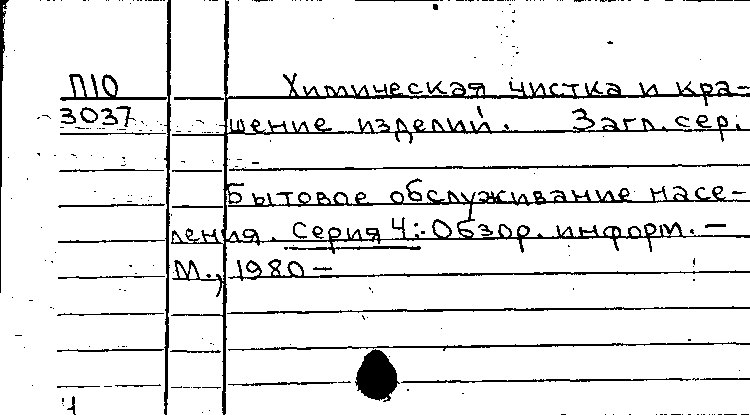 П10 Химическая чистка и кра-
3037 шение изделий. Загл. сер.
Бытовое обслуживание насе-
ления. Серия 4: Обзор. информ. –
М., 1980 –